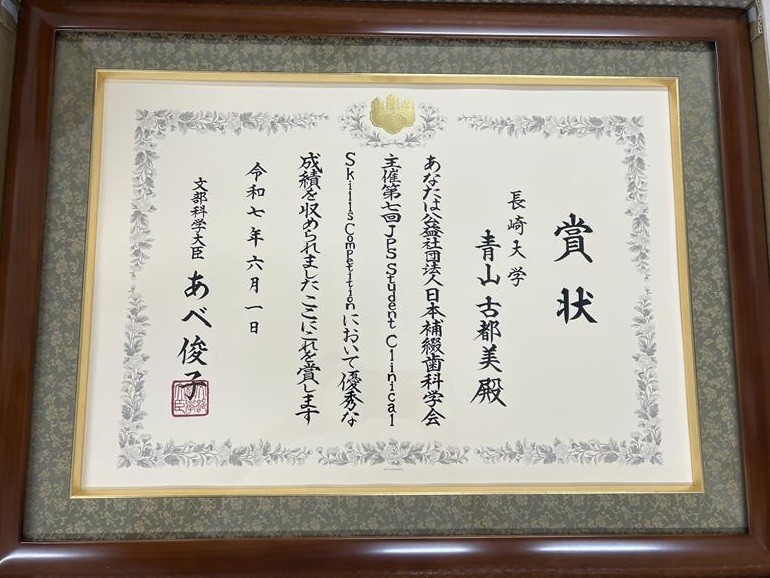 賞状
長崎大学
青山古都美殿
あなたは公益社団法人日本補綴歯科学会
主催第七回JPS Student Clinical
Skills Competitionにおいて優秀な
成績を収められましたここにこれを賞します
令和七年六月一日
文部科学大臣 あべ俊子